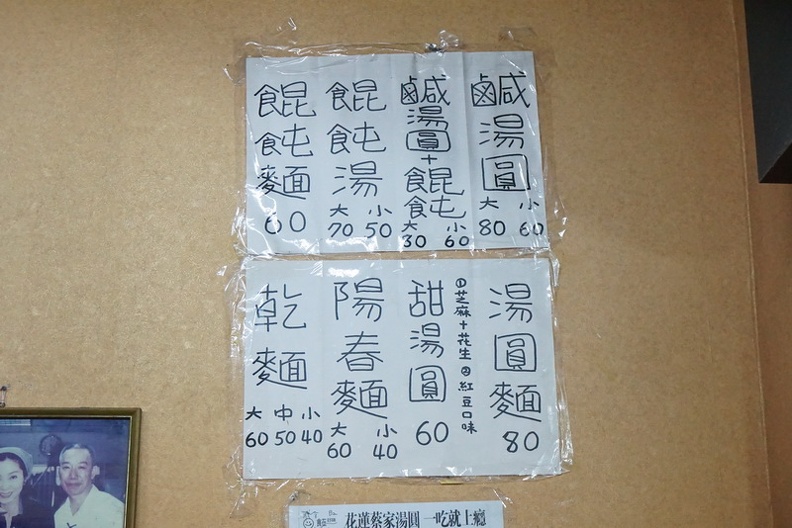 鹹湯圓
大 小
80 60
鹹湯圓+餛飩
大 小
80 60
餛飩湯
大 小
70 50
餛飩麵
60
湯圓麵
80
甜湯圓
60
①芝麻+花生 ②紅豆口味
陽春麵
大 小
60 40
乾麵
大 中 小
60 50 40
花蓮蔡家湯圓 一吃就上癮